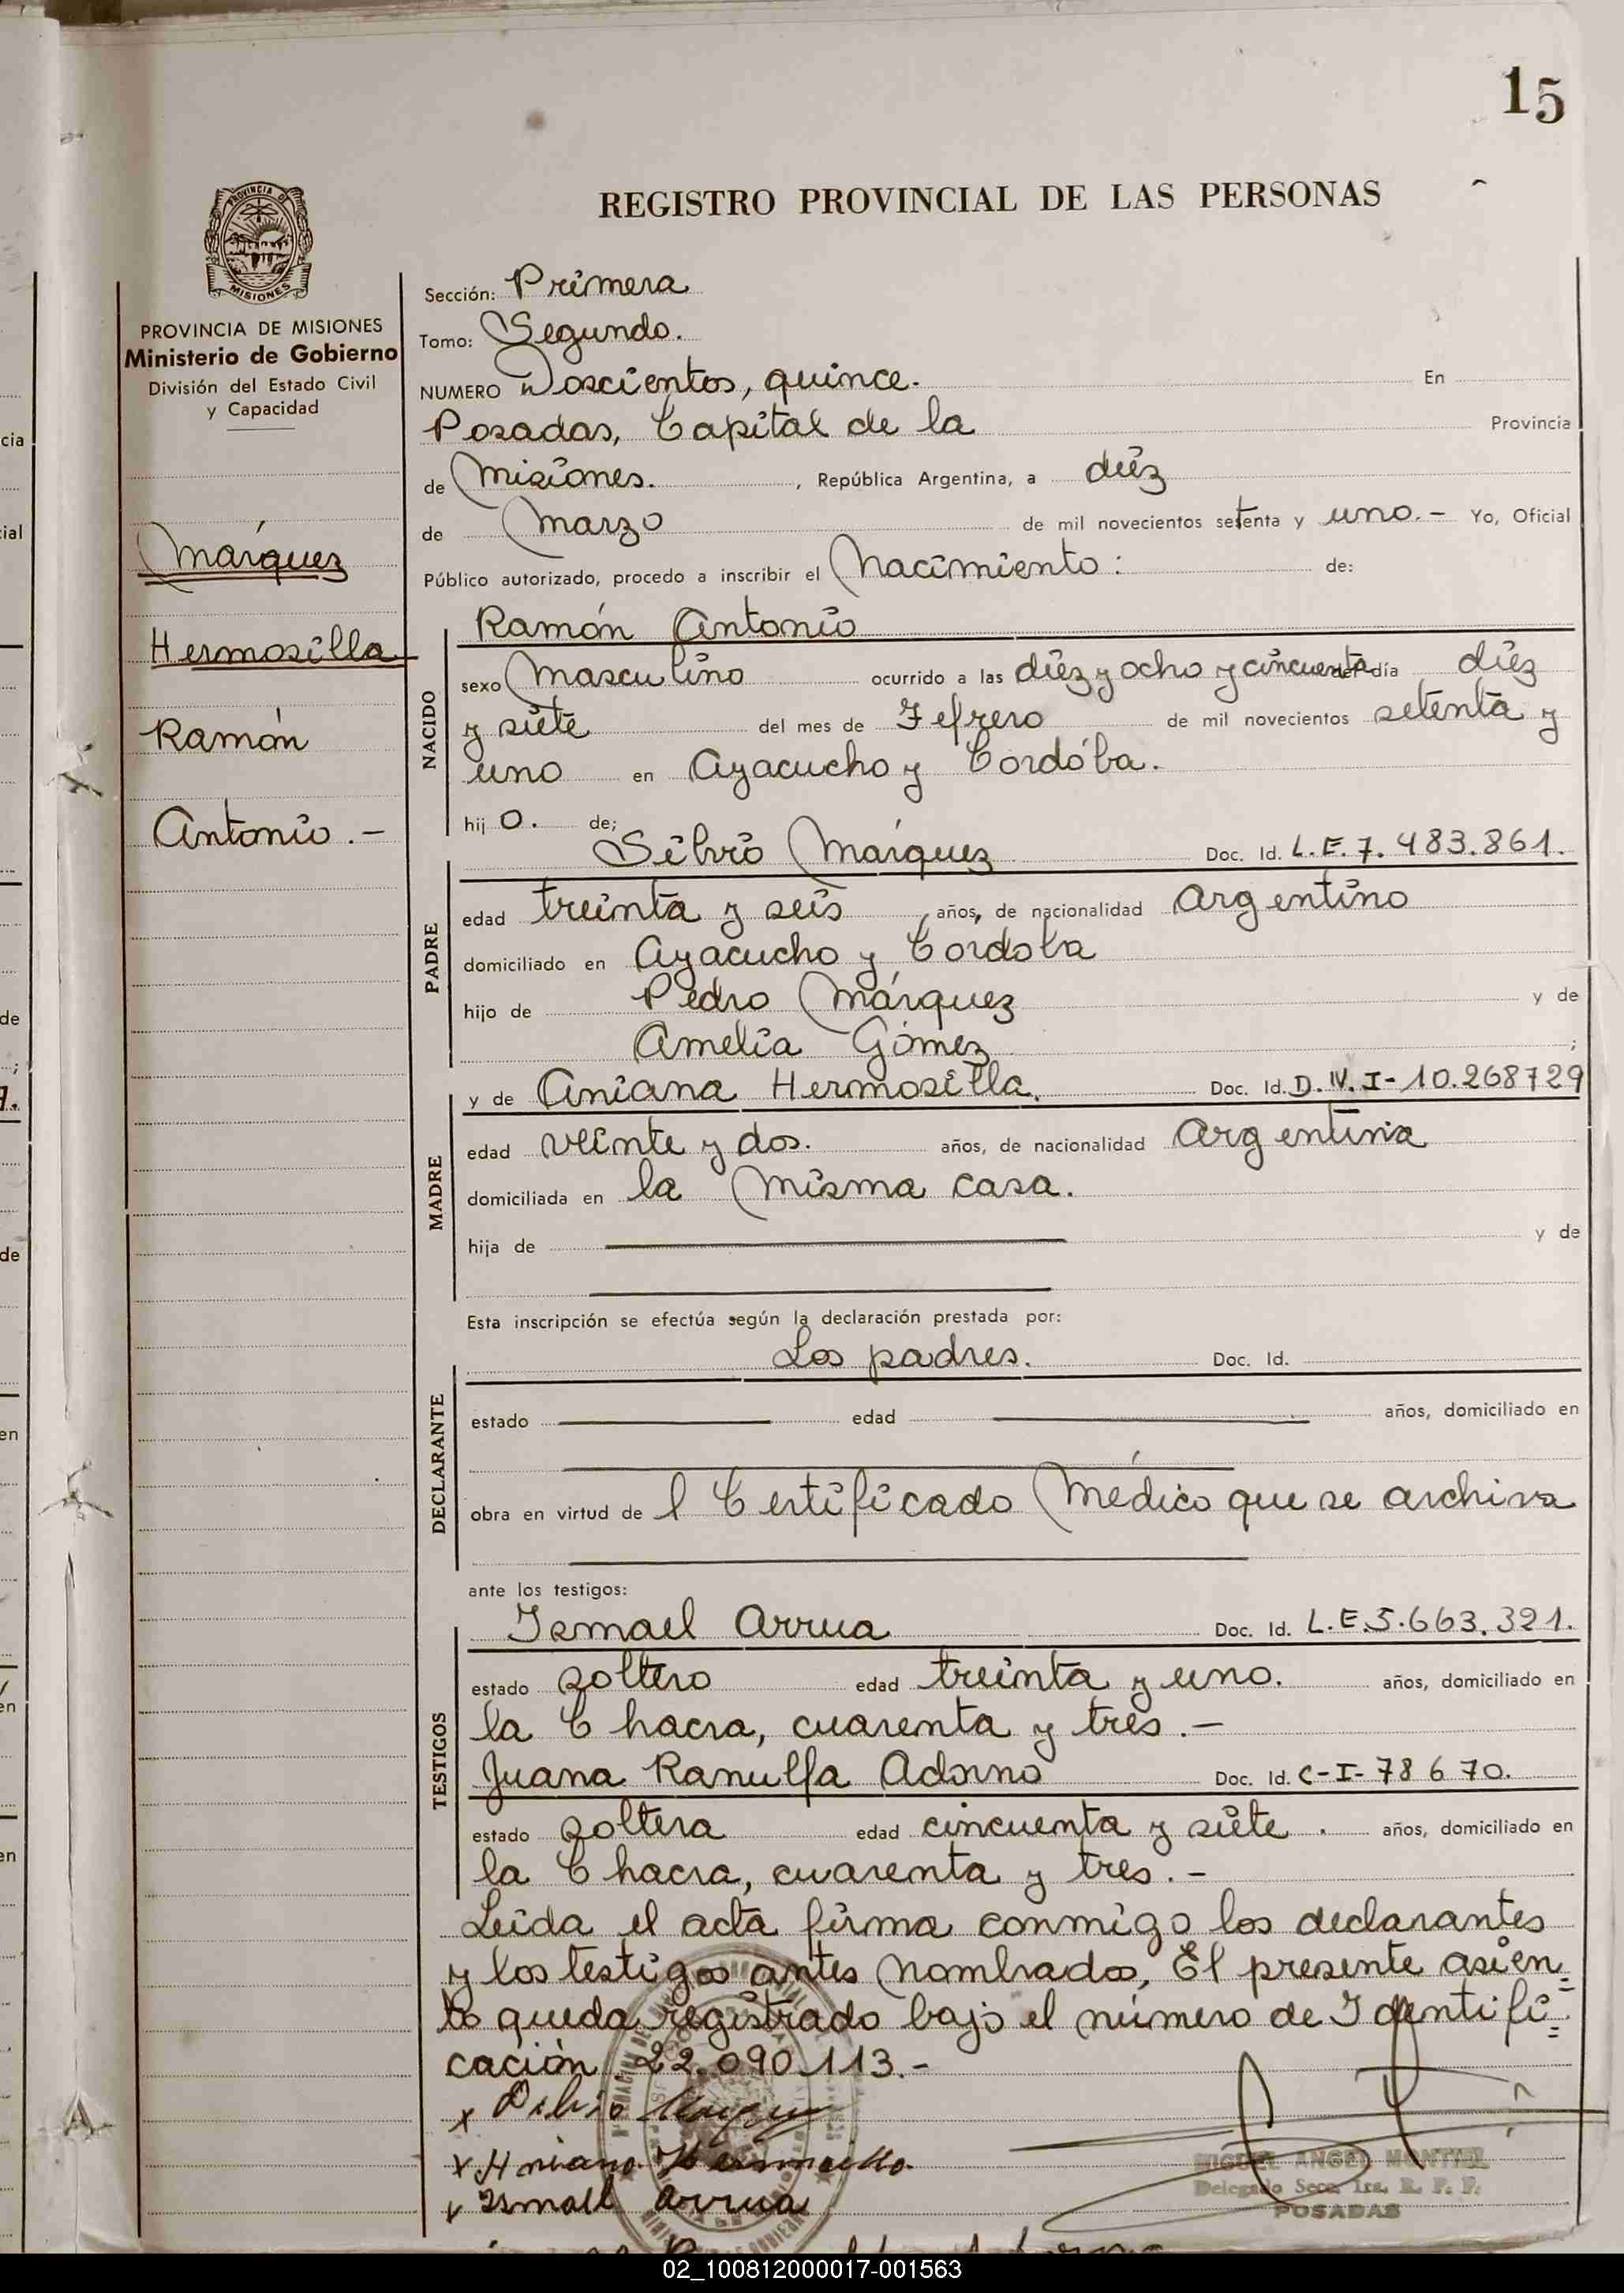 15
REGISTRO PROVINCIAL DE LAS PERSONAS
PROVINCIA DE
MISIONES
PROVINCIA DE MISIONES
Ministerio de Gobierno
División del Estado Civil
y Capacidad
Márquez
Hermosilla
Ramón
Antonio.-
Sección: Primera
Tomo: Segundo.
NUMERO Doscientos, quince. En
Posadas, Capital de la Provincia
de Misiones. , República Argentina, a diéz
de Marzo de mil novecientos setenta y uno.- Yo, Oficial
Público autorizado, procedo a inscribir el Nacimiento: de:
Ramón Antonio
NACIDO
sexo Masculino ocurrido a las diéz y ocho y cincuenta del día diéz
y siéte del mes de Fefrero de mil novecientos setenta y
uno en Ayacucho y Cordóba.
hij o. de;
Silvio Márquez Doc. Id. L.E. 7.483.861.
PADRE
edad treinta y seis años, de nacionalidad Argentino
domiciliado en Ayacucho y Cordoba
hijo de Pedro Márquez y de
Amelia Gómez ;
y de Aniana Hermosilla. Doc. Id. D.N.I-10.268729
MADRE
edad veinte y dos. años, de nacionalidad Argentina
domiciliada en la Misma casa.
hija de y de
Esta inscripción se efectúa según la declaración prestada por:
Los padres. Doc. Id.
DECLARANTE
estado edad años, domiciliado en
obra en virtud de l Certificado Médico que se archiva
ante los testigos:
Ismael Arrua Doc. Id. L.E.5.663.321.
TESTIGOS
estado soltero edad treinta y uno. años, domiciliado en
la Chacra, cuarenta y tres.-
Juana Ranulfa Adorno Doc. Id. C-I-78670.
estado soltera edad cincuenta y siéte. años, domiciliado en
la Chacra, cuarenta y tres.-
Leida el acta firma conmigo los declarantes
y los testigos antes Nombrados, El presente asien=
to queda registrado bajo el número de Identifi=
cación 22.090.113.-
x Silvio Marquez
x Aniana Hermosilla
x Ismael Arrua
MIGUEL ANGEL MONTIEL
Delegado Secc. 1ra. R. P. P.
POSADAS
02_100812000017-001563